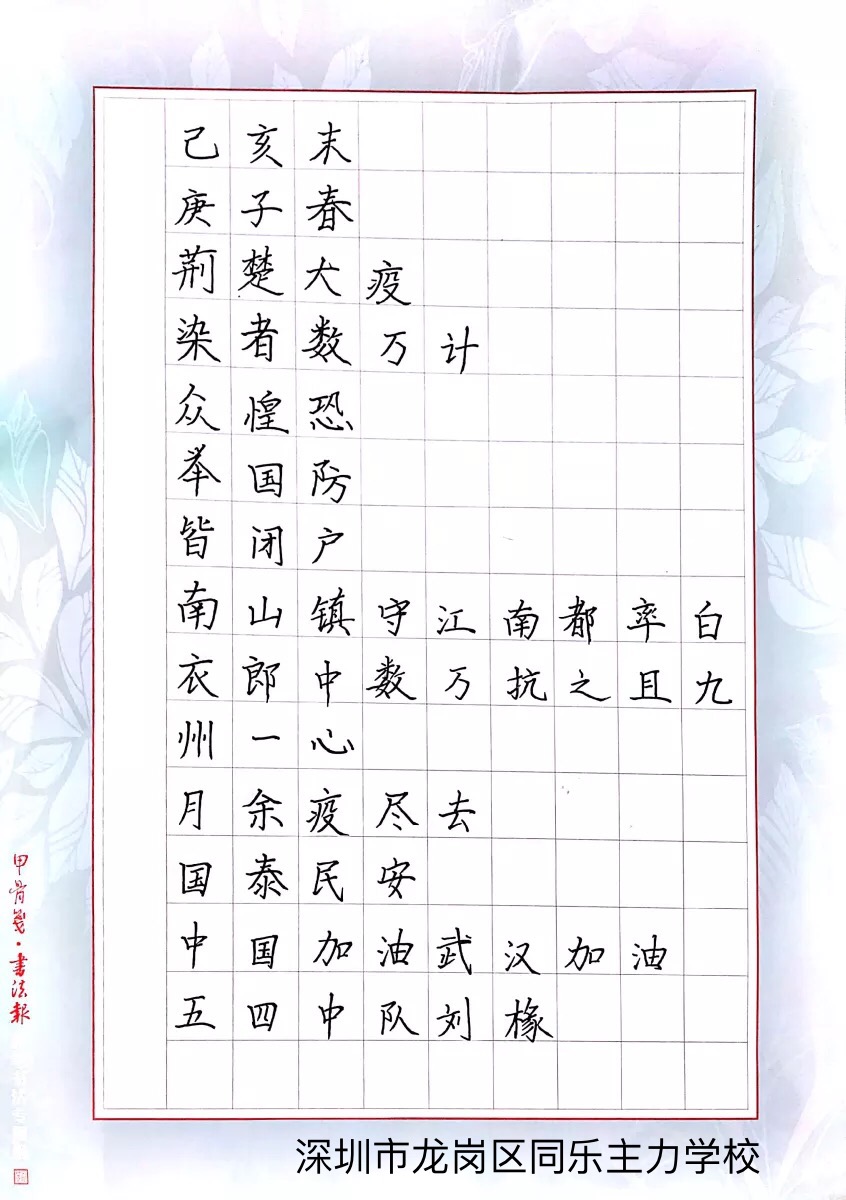 己亥末
庚子春
荆楚大疫
染者数万计
众惶恐
举国防
皆闭户
南山镇守江南都率白
衣郎中数万抗之且九
州一心
月余疫尽去
国泰民安
中国加油武汉加油
五四中队刘椽
甲骨笺·书法報
深圳市龙岗区同乐主力学校